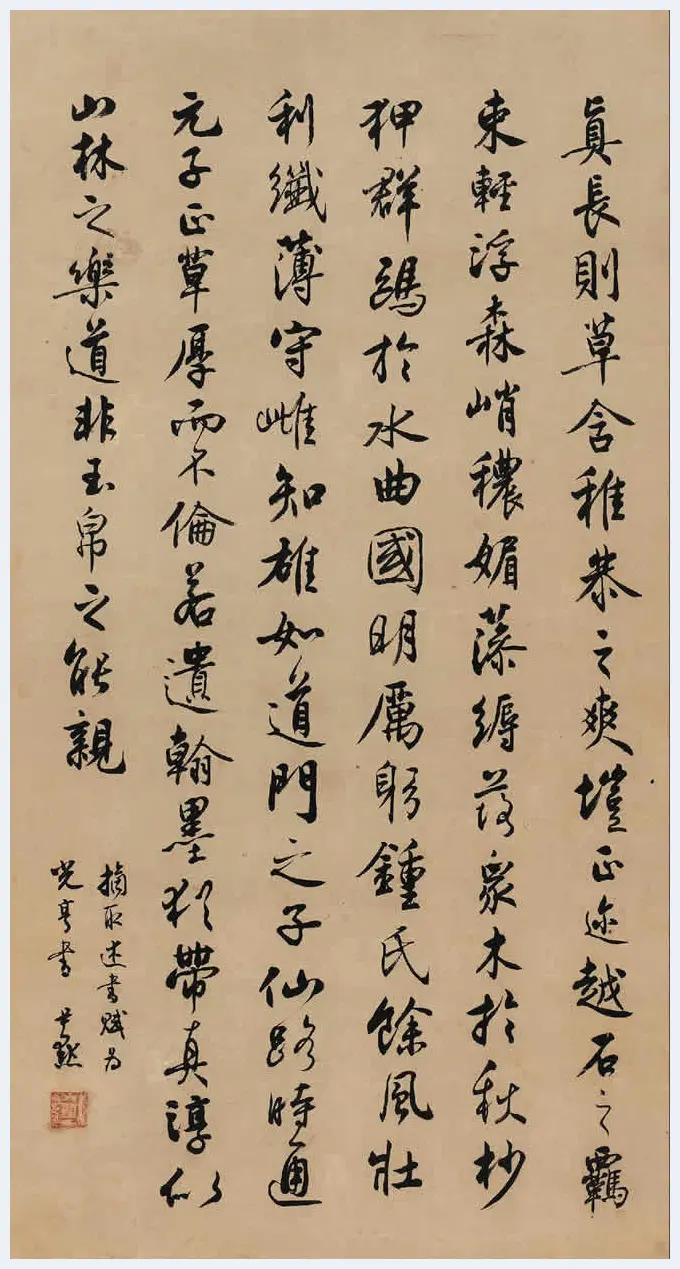 真長則草含稚恭之爽塏正迹越石之羈
束輕浮森峭穠媚藻縟落衆木於秋杪
狎群鷗於水曲國明厲躬鍾氏餘風壯
利纖薄守雌知雄如道門之子仙路時通
元子正草厚而不倫若遺翰墨猶帶真淳似
山林之樂道非玉帛之能親
摘取述書賦為
亭書 尹默